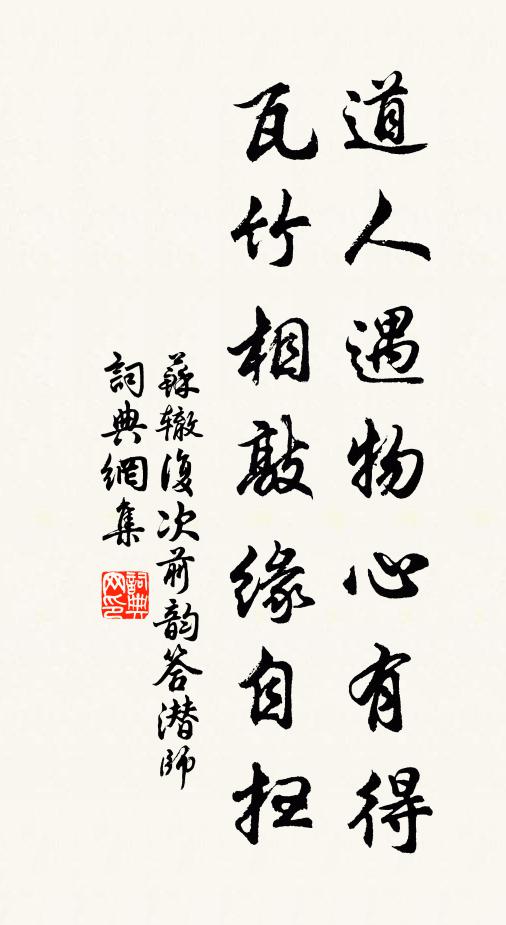 道人遇物心有得
瓦竹相敲緣自扭
蘇辙復次前韵答潜師
詞典網集
詞典网印